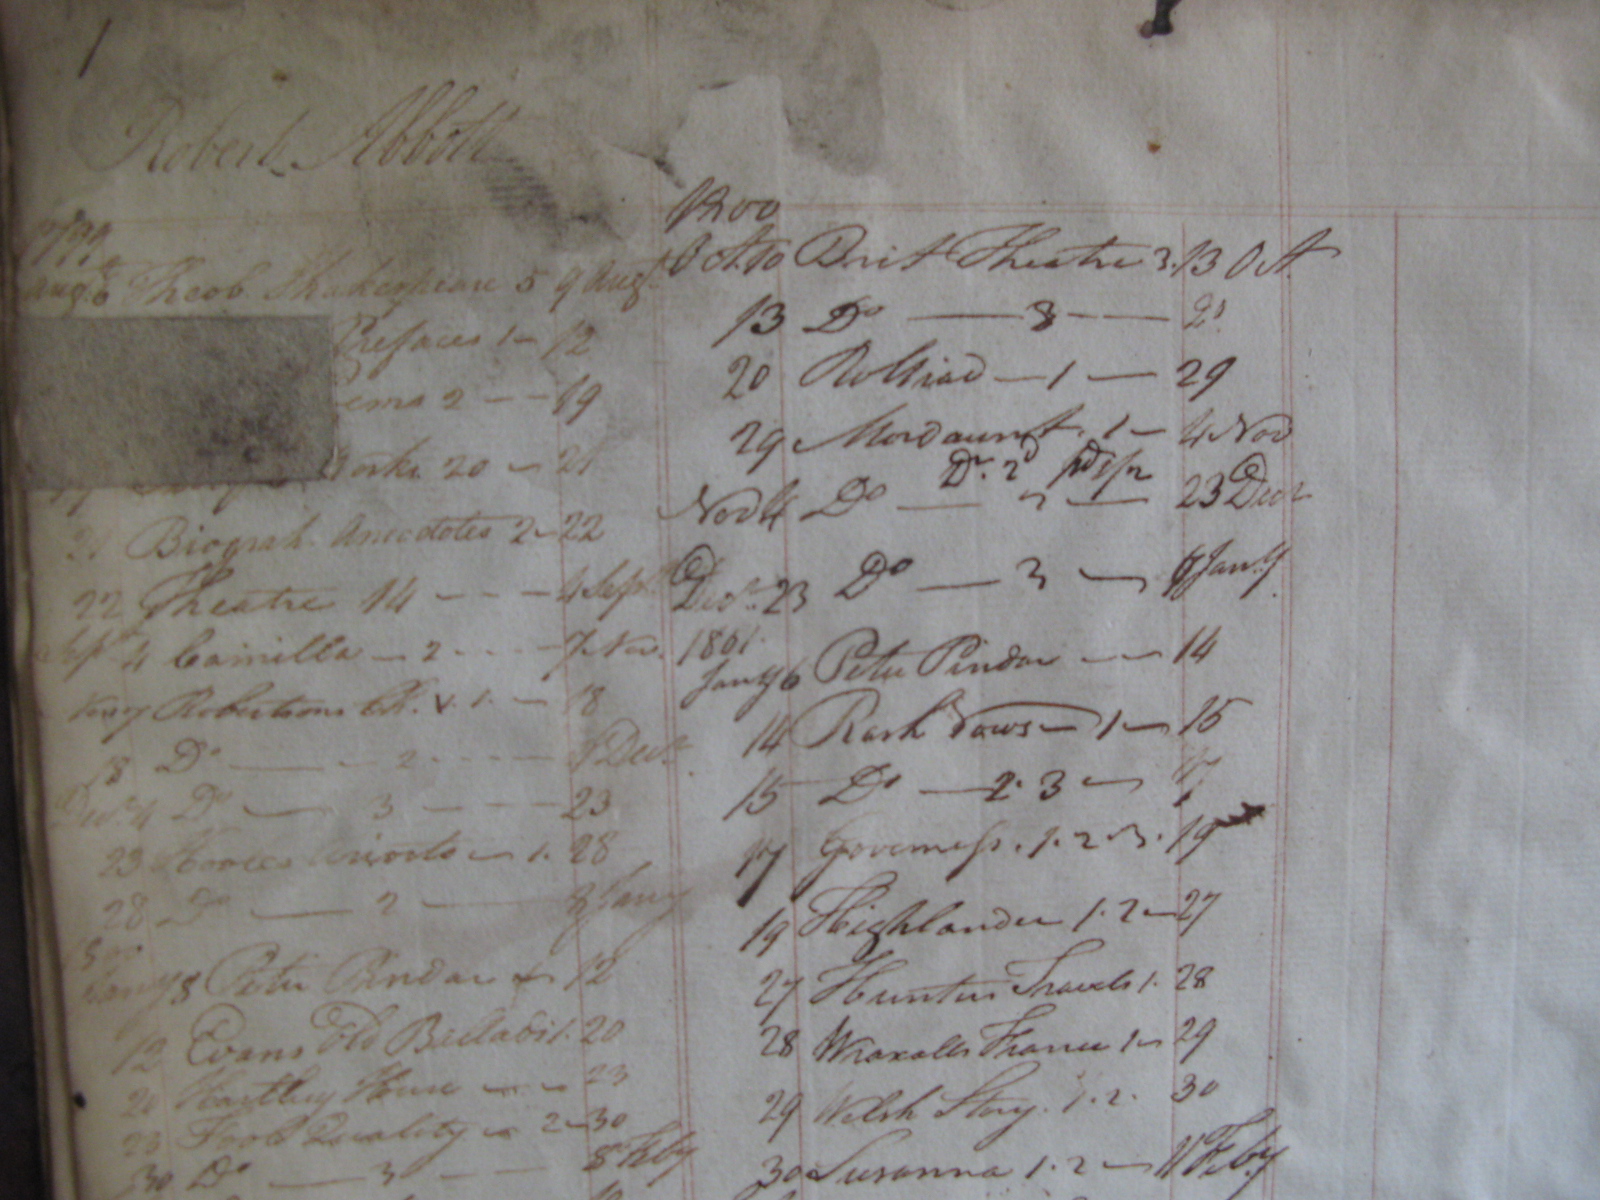 1
Robert Abbott
1799
Aug. 6 Theob. Shakespeare 5 9 Augt
Prefaces 1 - 12
ems 2 - - 19
orks 20 - 21
21 Biograh. Anecdotes 2 - 22
22 Theatre 14 - - - 4 Sept
Sept 4 Camilla - 2 - - - 7 Nov.
Robertsons Ch. V. 1. - 18
18 Do - 2 - - - 4 Decr
Decr. 4 Do - 3 - - - 23
23 - 1. 28
28 Do - 2 - 8 Jany
Jany 8 Peter Pindar - 12
12 Evans Old Ballads 1. 20
20 Hartley House - - 23
23 Fool Quality - 2 - 30
30 Do - 3 - 8 Feby
1800
Oct. 10 Brit Theatre 3. 13 Oct.
13 Do - 8 - 20
20 Rolliad - 1 - 29
29 Mordaunt. 1 - 4 Nov
Dr. 2d pd
Nov 4 Do - 2 - 23 Decr
Decr. 23 Do - 3 - 6 Jany
1801.
Jany 6 Peter Pindar - 14
14 Rash Vows - 1 - 15
15 Do - 2. 3 - 17
17 Governess. 1. 2. 3. 19
19 Highlander 1. 2 - 27
27 Hunters Travels 1. 28
28 Wraxalls France 1 - 29
29 Welsh Story. 1. 2. 30
30 Susanna 1. 2 - 11 Feby